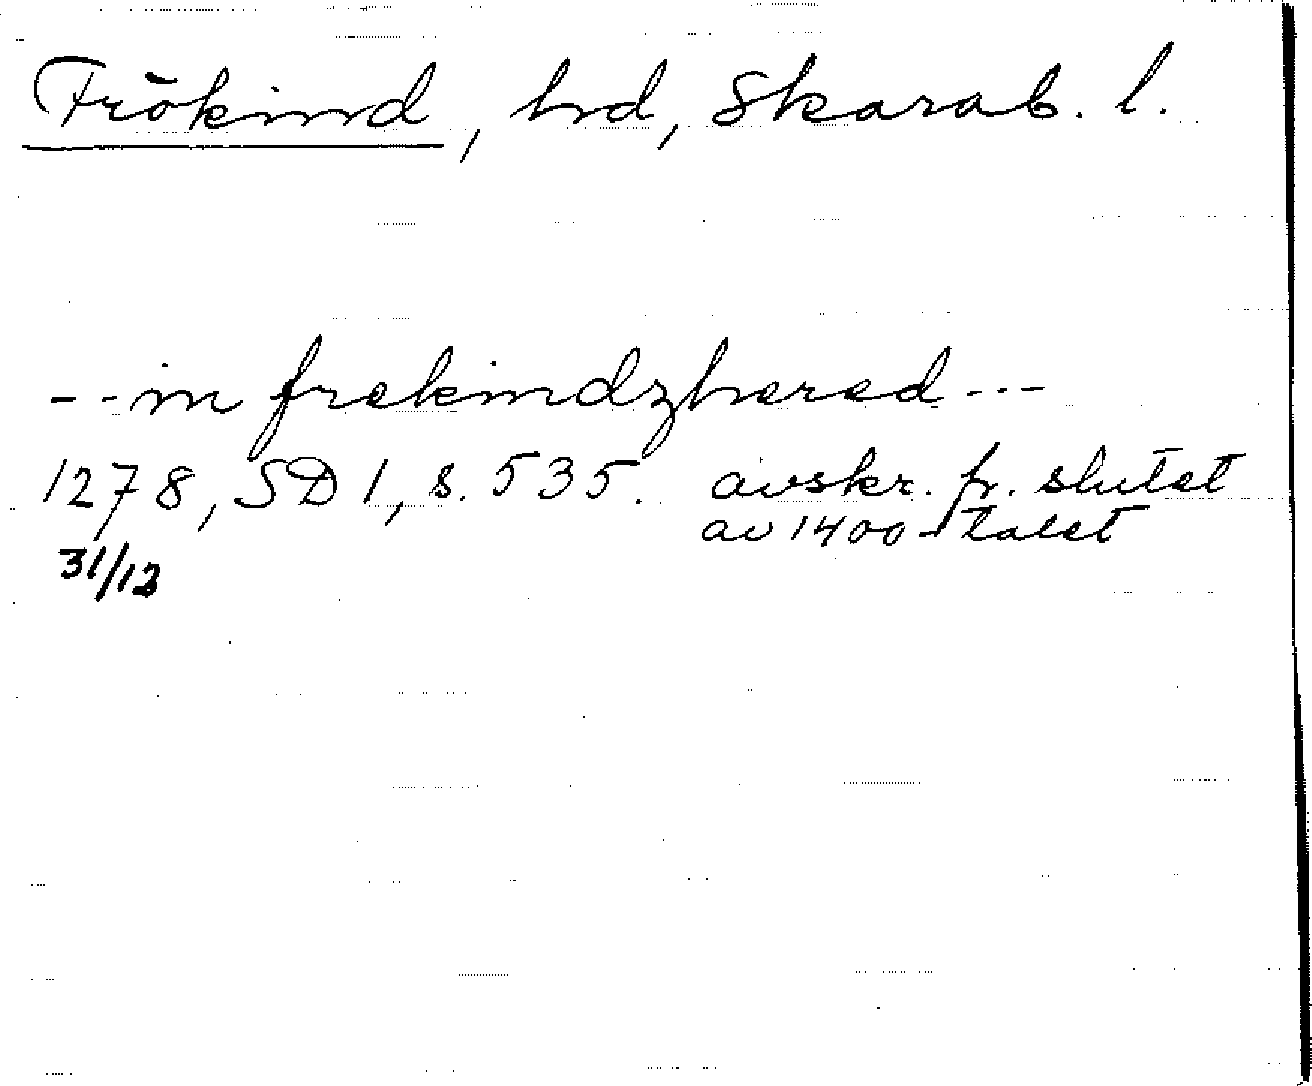 Frökind, hd, Skarab. l.
-- in frekindzhered ---
1278, SD 1, s. 535. avskr. fr. slutet
av 1400-talet
31/12